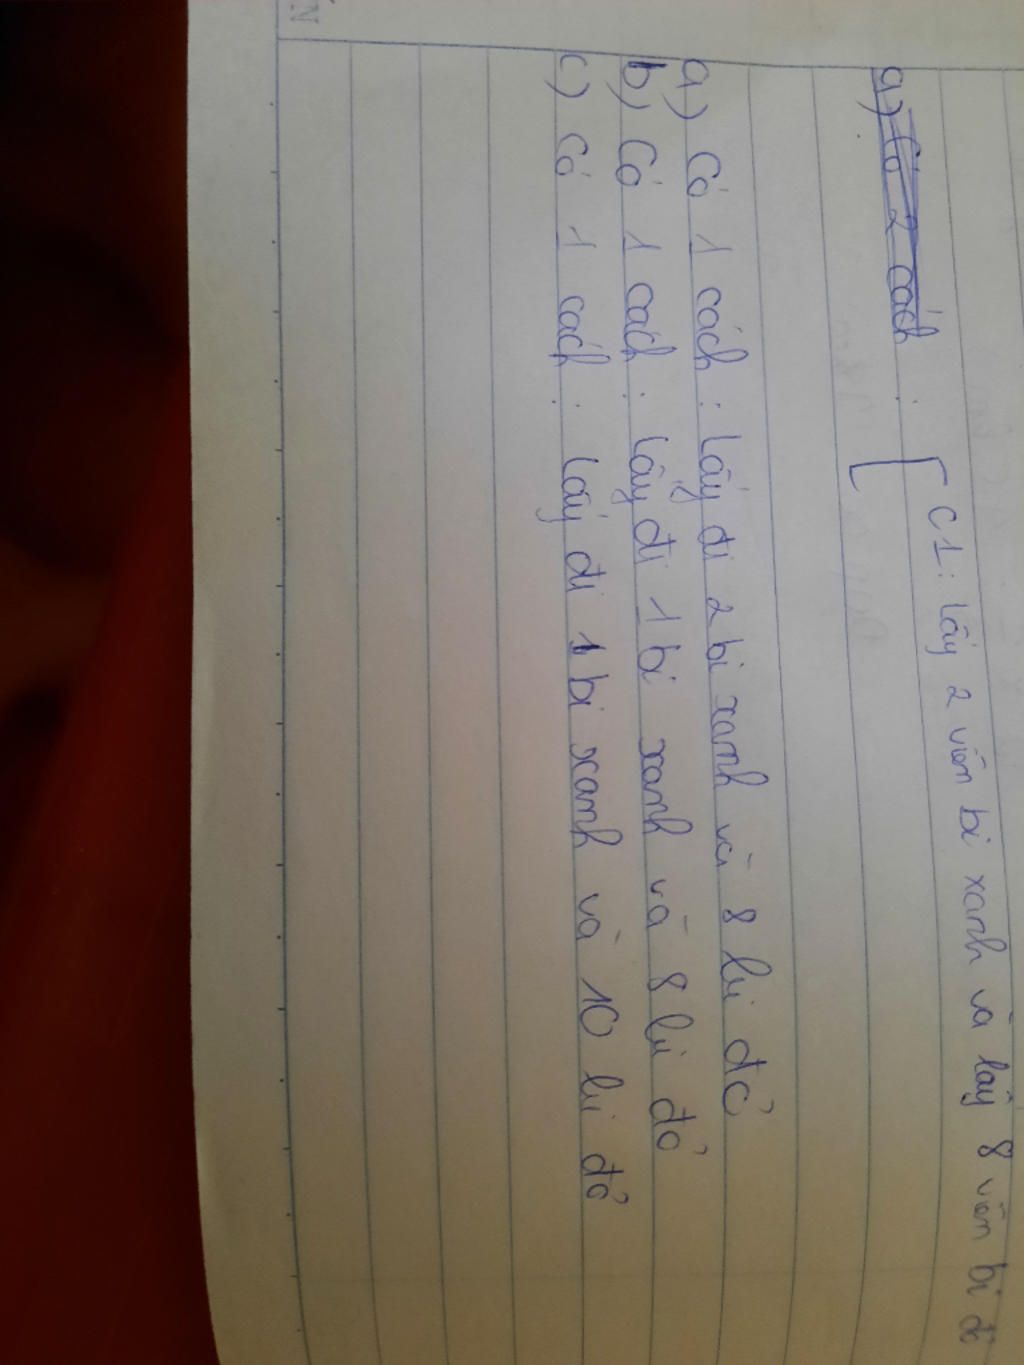 C1: lấy 2 viên bi xanh và lấy 8 viên bi
a) Có 2 cách :
a) Có 1 cách : lấy đi 2 bi xanh và 8 bi đỏ
b) Có 1 cách : lấy đi 1 bi xanh và 8 bi đỏ
c) Có 1 cách : lấy đi 1 bi xanh và 10 bi đỏ